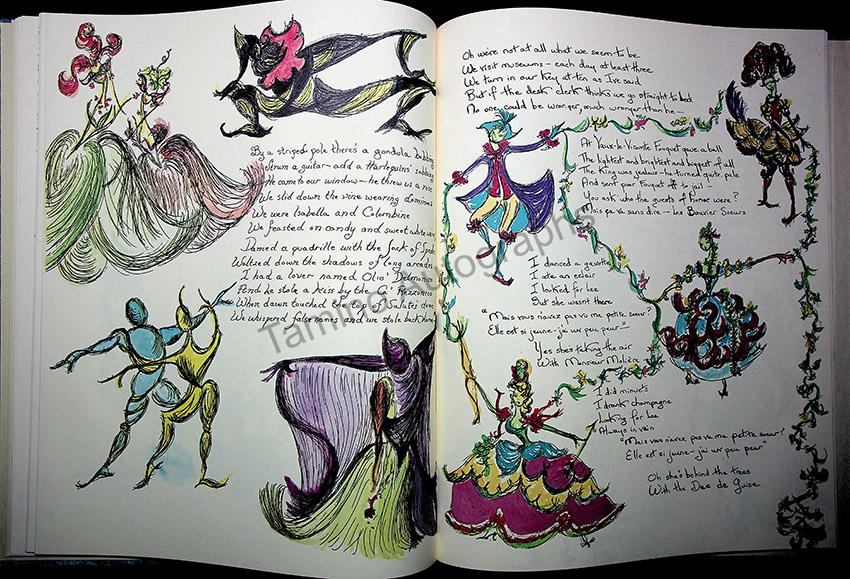 By a striped pole there's a gondola bobbing
Strum a guitar - add a Harlequin's sobbing
He came to our window - he threw us a rose
We slid down the vine wearing dominoes
We were Isabella and Columbine
We feasted on candy and sweet white wine
Danced a quadrille with the Jack of Spades
Waltzed down the shadows of long arcades
I had a lover named Olio' Delmonico
And he stole a kiss by the Ca' Rezzonico
When dawn touched the top of Salute's dome
We whispered false names and we stole back home
Oh we're not at all what we seem to be
We visit museums - each day at least three
We turn in our key at ten as I've said
But if the desk clerk thinks we go straight to bed
No one could be wronger, much wronger than he -
At Vaux-le-Vicomte Fouquet gave a ball
The lightest and brightest and biggest of all
The King was jealous - he turned quite pale
And sent poor Fouquet off to jail -
You ask who the guests of honor were?
Mais ça va sans dire - Les Bouvier Soeurs
I danced a gavotte
I ate an eclair
I looked for Lee
But she wasn't there
"Mais vous n'avez pas vu ma petite soeur?
Elle est si jeune - j'ai un peu peur"
Yes she's taking the air
With Monsieur Molière
I did minuets
I drank champagne
Looking for Lee
Always in vain
"Mais vous n'avez pas vu ma petite soeur?
Elle est si jeune - j'ai un peu peur"
Oh she's behind the trees
With the Duc de Guise
Tamino Autographs